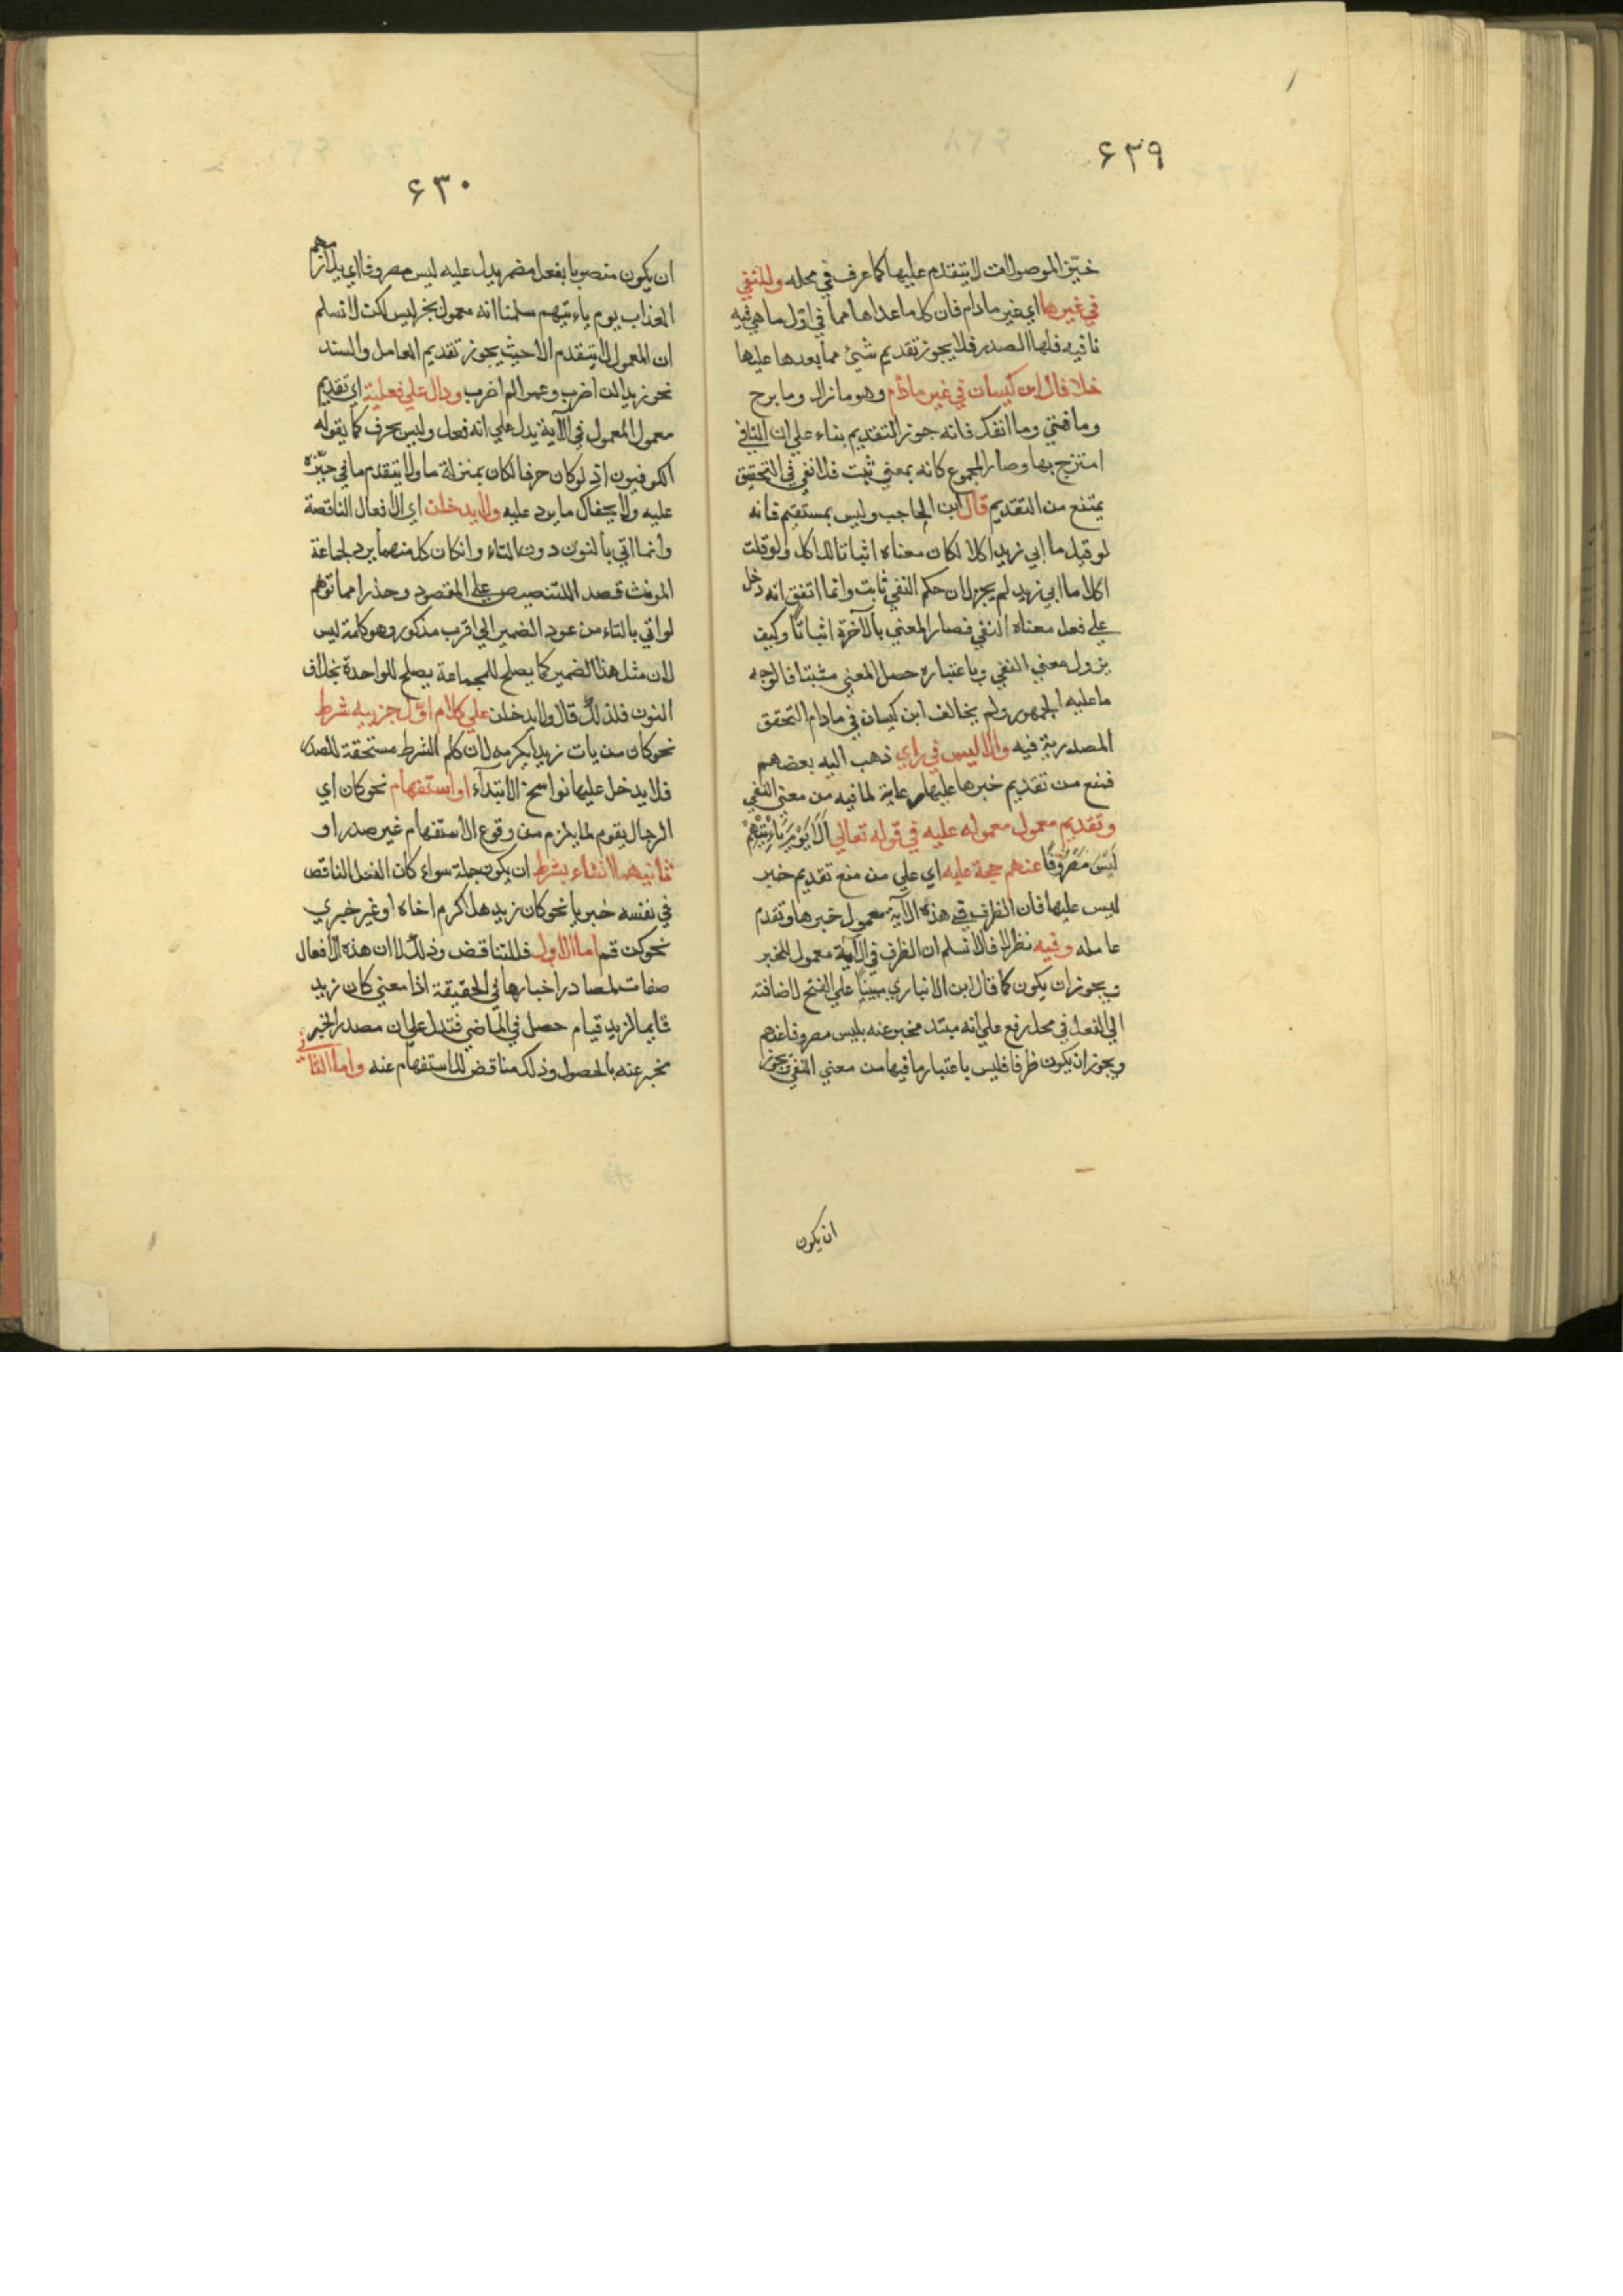 ٤٣٩
حيّز الموصولات لا يتقدم عليها كما عرف في محله وللنفي
في غيرها اي غير مادام فان كل ما عداها مما في اول ما هي فيه
نافيه فلها الصدر فلا يجوز تقديم شئ مما بعدها عليها
خلافا لابن كيسان في غير مادام وهو مازال وما برح
وما فتئ وما انفك فانه جوز التقديم بناء علي ان النافي
امتزج بها وصار المجموع كانه بمعني ثبت فلا نفي في التحقيق
يمتنع من التقديم قال ابن الحاجب وليس بمستقيم فانه
لو قيل ما ابي زيد اكلا لكان معناه اثباتا للاكل ولو قلت
اكلا ما ابي زيد لم يجز لان حكم النفي ثابت وانما اتفق انه دخل
علي فعل معناه النفي فصار المعني بالآخرة اثباتًا وكيف
يزول معني النفي وباعتباره حصل المعني مثبتا فالوجه
ما عليه الجمهور ولم يخالف ابن كيسان في مادام لتحقق
المصدرية فيه والا ليس في راي ذهب اليه بعضهم
فمنع من تقديم خبرها عليها رعاية لما فيه من معني النفي
وتقديم معمول معموله عليه في قوله تعالي اَلَا يَوْمَ يَاْتِيْهِمْ
لَيْسَ مَصْرُوْفًا عنهم حجة عليه اي علي من منع تقديم خبر
ليس عليها فان الظرف في هذه الآية معمول خبرها وتقدم
عامله وفيه نظر اذ فلا نسلم ان الظرف في الآية معمول للخبر
ويجوز ان يكون كما قال ابن الانباري مبنيا علي الفتح لاضافته
الي الفعل في محل رفع علي انه مبتدء مخبر عنه بليس مصروفا عنهم
ويجوز ان يكون ظرفا فليس باعتبار ما فيها من معني النفي ويجوز
ان يكون
٤٣٠
ان يكون منصوبا بفعل مضمر يدل عليه ليس مصروفا اي يلازمهم
العذاب يوم ياءتيهم سلمنا انه معمول بخبر ليس لكن لا نسلم
ان المعمول لا يتقدم الا حيث يجوز تقديم العامل والسند
نحو زيدا لن اضرب وعمرا لم اضرب ودال علي فعلية اي تقديم
معمول المعمول في الآية يدل علي انه فعل وليس بحرف كما يقوله
الكوفيون اذ لو كان حرفا لكان بمنزلة ما ولا يتقدم ما في حيّزه
عليه ولا يخفاك ما يرد عليه ولا يدخلن اي الافعال الناقصة
وانما اتي بالنون دون التاء وان كان كل منهما يرد لجماعة
المونث قصد للتنصيص علي المقصود وحذرا مما توهم
لو اتي بالتاء من عود الضمير الي اقرب مذكور وهو كلمة ليس
لان مثل هذا الضمير كما يصلح للجماعة يصلح للواحدة بخلاف
النون فلذلك قال ولا يدخلن علي كلام اوّل جزيیه شرط
نحو كان من يات زيدا يكرمه لان كلم الشرط مستحقة للصدر
فلا يدخل عليها نواسخ الابتدآء او استفهام نحو كان اي
الرجال يقوم لما يلزم من وقوع الاستفهام غير صدر او
ثانيهما الانشاء بشرط ان يكون جملة سواء كان الفعل الناقص
في نفسه خبريا نحو كان زيد هل اكرم اخاه او غير خبري
نحو كن قم اما الاول فللتناقض وذلك لان هذه الافعال
صفات لمصادر اخبارها في الحقيقة اذا معني كان زيد
قايما لزيد قيام حصل في الماضي فتدل علي ان مصدر الخبر
مخبر عنه بالحصول وذلك مناقض للاستفهام عنه واما الثاني